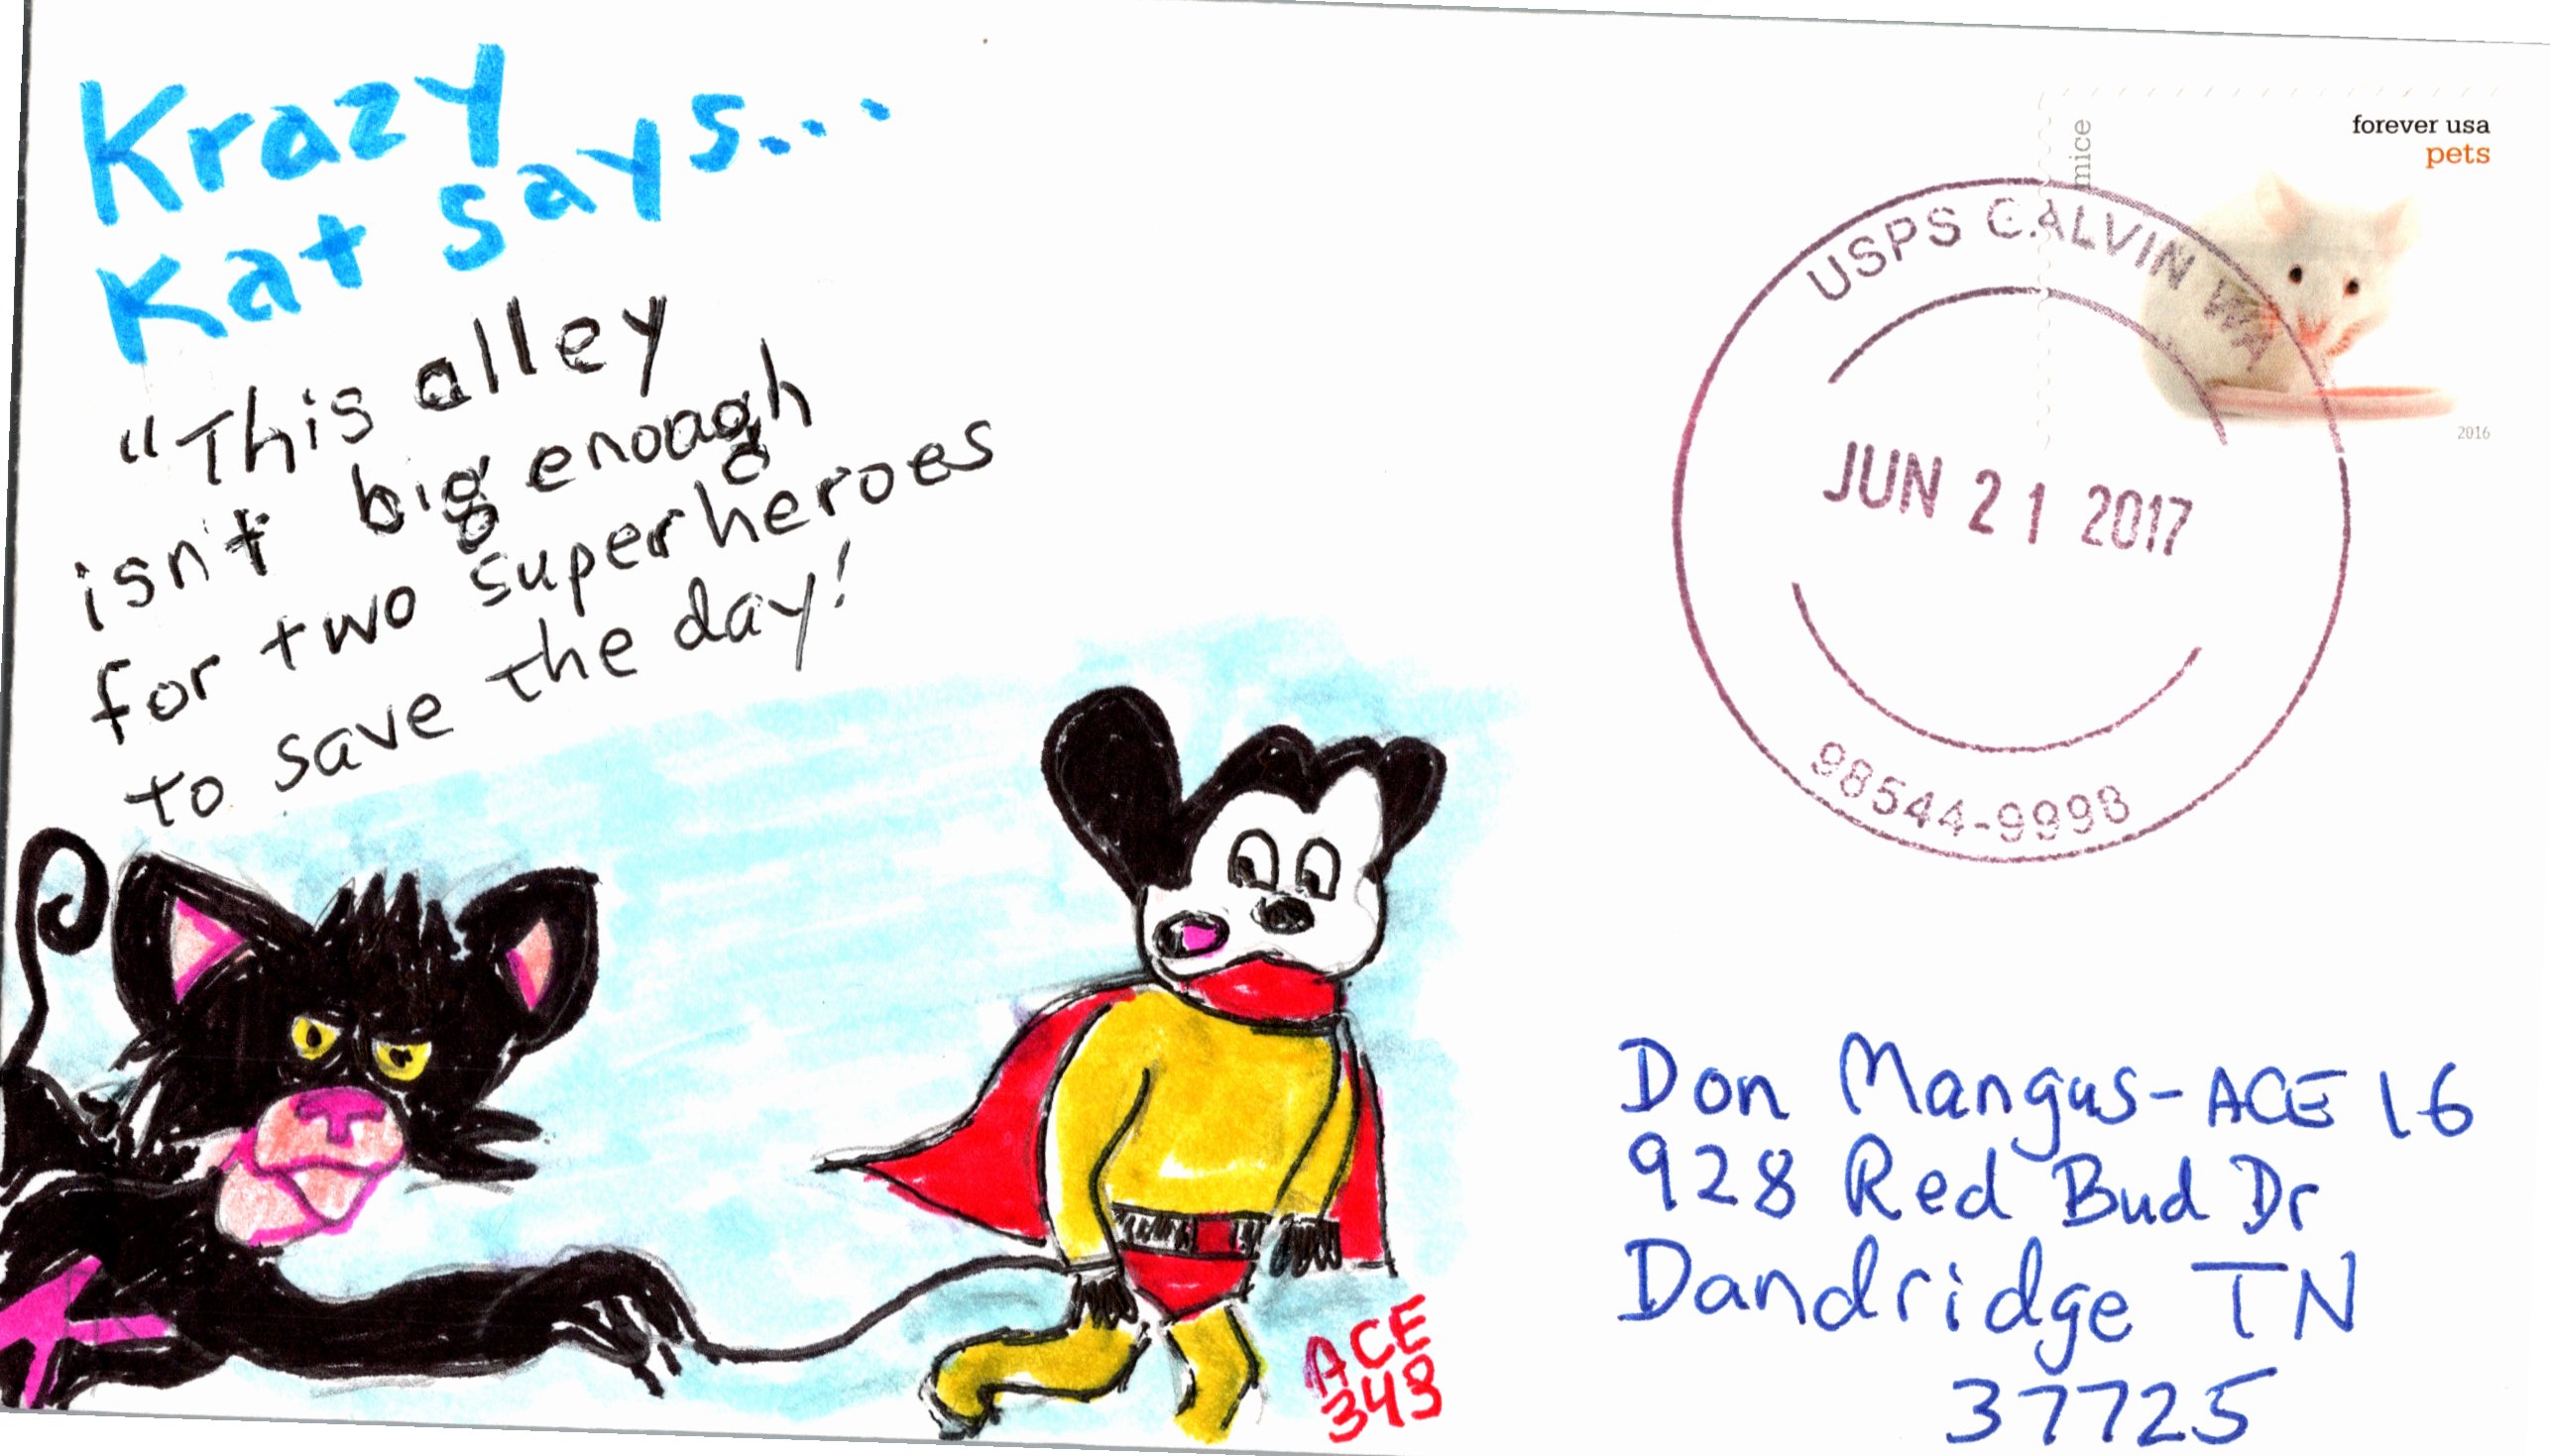 Krazy
Kat says...
"This alley
isn't big enough
for two superheroes
to save the day!
mice
forever usa
pets
2016
USPS CALVIN WA
JUN 21 2017
98544-9998
Don Mangus-ACE 16
928 Red Bud Dr
Dandridge TN
37725
ACE
343